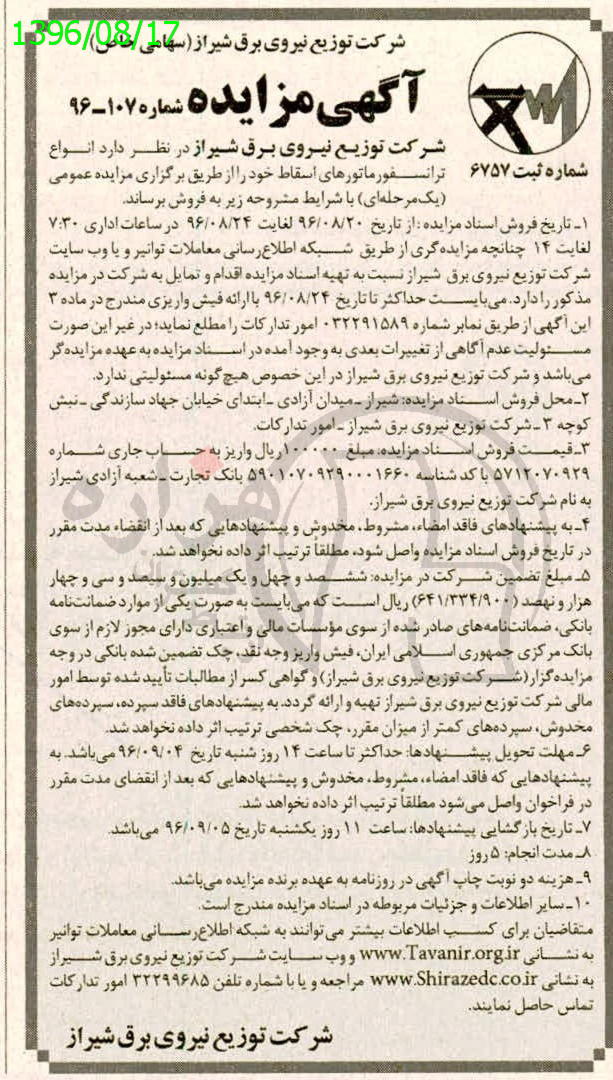 1396/08/17
شرکت توزیع نیروی برق شیراز (سهامی خاص)
آگهی مزایده شماره ۱۰۷-۹۶
شماره ثبت ۶۷۵۷
شرکت توزیع نیروی برق شیراز در نظر دارد انواع
ترانسفورماتورهای اسقاط خود را از طریق برگزاری مزایده عمومی
(یک‌مرحله‌ای) با شرایط مشروحه زیر به فروش برساند.
۱- تاریخ فروش اسناد مزایده: از تاریخ ۹۶/۰۸/۲۰ لغایت ۹۶/۰۸/۲۴ در ساعات اداری ۷:۳۰
لغایت ۱۴ چنانچه مزایده‌گری از طریق شبکه اطلاع‌رسانی معاملات توانیر و یا وب سایت
شرکت توزیع نیروی برق شیراز نسبت به تهیه اسناد مزایده اقدام و تمایل به شرکت در مزایده
مذکور را دارد. می‌بایست حداکثر تا تاریخ ۹۶/۰۸/۲۴ با ارائه فیش واریزی مندرج در ماده ۳
این آگهی از طریق نمابر شماره ۰۳۲۲۹۱۵۸۹ امور تدارکات را مطلع نماید؛ در غیر این صورت
مسئولیت عدم آگاهی از تغییرات بعدی به وجود آمده در اسناد مزایده به عهده مزایده‌گر
می‌باشد و شرکت توزیع نیروی برق شیراز در این خصوص هیچ‌گونه مسئولیتی ندارد.
۲- محل فروش اسناد مزایده: شیراز - میدان آزادی - ابتدای خیابان جهاد سازندگی - نبش
کوچه ۳ - شرکت توزیع نیروی برق شیراز - امور تدارکات.
۳- قیمت فروش اسناد مزایده: مبلغ ۱۰۰۰۰۰ ریال واریز به حساب جاری شماره
۵۷۱۲۰۷۰۹۲۹ با کد شناسه ۵۹۰۱۰۷۰۹۲۹۰۰۰۱۶۶۰ بانک تجارت - شعبه آزادی شیراز
به نام شرکت توزیع نیروی برق شیراز.
۴- به پیشنهادهای فاقد امضاء، مشروط، مخدوش و پیشنهادهایی که بعد از انقضاء مدت مقرر
در تاریخ فروش اسناد مزایده واصل شود، مطلقاً ترتیب اثر داده نخواهد شد.
۵- مبلغ تضمین شرکت در مزایده: ششصد و چهل و یک میلیون و سیصد و سی و چهار
هزار و نهصد (۶۴۱/۳۳۴/۹۰۰) ریال است که می‌بایست به صورت یکی از موارد ضمانت‌نامه
بانکی، ضمانت‌نامه‌های صادر شده از سوی مؤسسات مالی و اعتباری دارای مجوز لازم از سوی
بانک مرکزی جمهوری اسلامی ایران، فیش واریز وجه نقد، چک تضمین شده بانکی در وجه
مزایده‌گزار (شرکت توزیع نیروی برق شیراز) و گواهی کسر از مطالبات تأیید شده توسط امور
مالی شرکت توزیع نیروی برق شیراز تهیه و ارائه گردد. به پیشنهادهای فاقد سپرده، سپرده‌های
مخدوش، سپرده‌های کمتر از میزان مقرر، چک شخصی ترتیب اثر داده نخواهد شد.
۶- مهلت تحویل پیشنهادها: حداکثر تا ساعت ۱۴ روز شنبه تاریخ ۹۶/۰۹/۰۴ می‌باشد. به
پیشنهادهایی که فاقد امضاء، مشروط، مخدوش و پیشنهادهایی که بعد از انقضای مدت مقرر
در فراخوان واصل می‌شود مطلقاً ترتیب اثر داده نخواهد شد.
۷- تاریخ بازگشایی پیشنهادها: ساعت ۱۱ روز یکشنبه تاریخ ۹۶/۰۹/۰۵ می‌باشد.
۸- مدت انجام: ۵ روز
۹- هزینه دو نوبت چاپ آگهی در روزنامه به عهده برنده مزایده می‌باشد.
۱۰- سایر اطلاعات و جزئیات مربوطه در اسناد مزایده مندرج است.
متقاضیان برای کسب اطلاعات بیشتر می‌توانند به شبکه اطلاع‌رسانی معاملات توانیر
به نشانی www.Tavanir.org.ir و وب سایت شرکت توزیع نیروی برق شیراز
به نشانی www.Shirazedc.co.ir مراجعه و یا با شماره تلفن ۳۲۲۹۹۶۸۵ امور تدارکات
تماس حاصل نمایند.
شرکت توزیع نیروی برق شیراز
هزاره